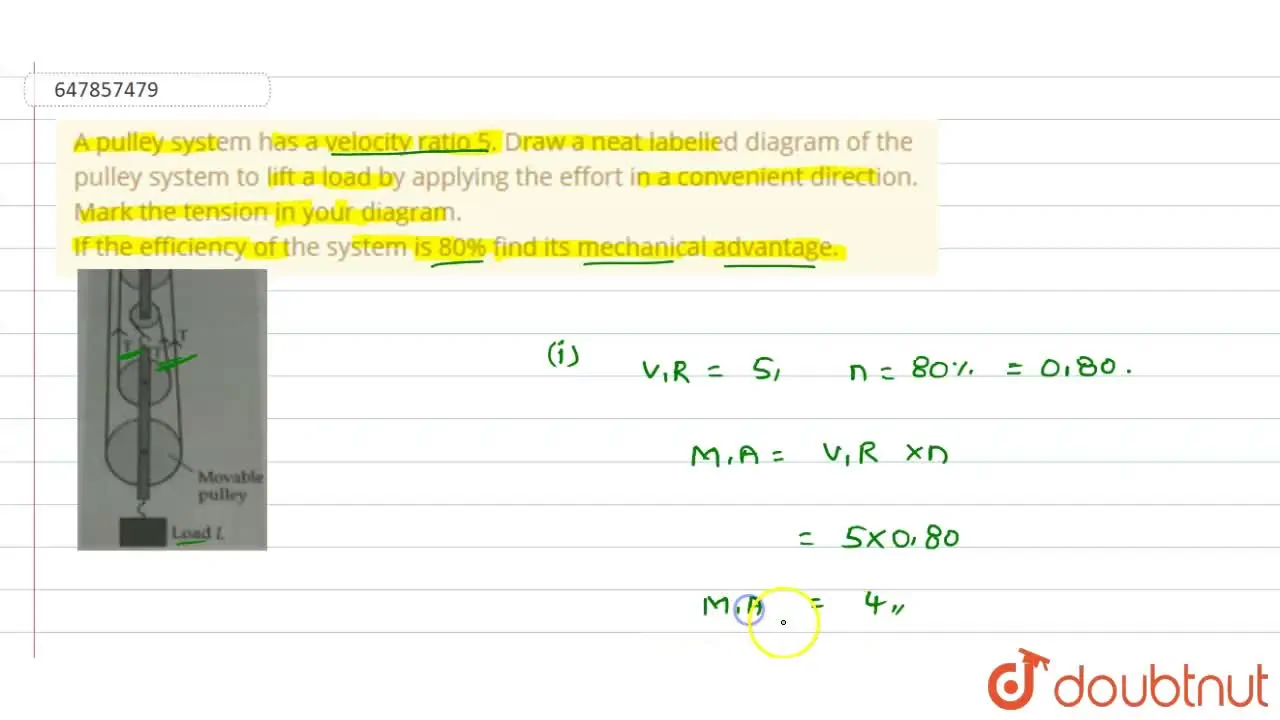 647857479
A pulley system has a velocity ratio 5. Draw a neat labelled diagram of the
pulley system to lift a load by applying the effort in a convenient direction.
Mark the tension in your diagram.
If the efficiency of the system is 80% find its mechanical advantage.
T T T
Movable
pulley
Load L
(i) V.R = 5, n = 80% = 0.80.
M.A = V.R × n
= 5 × 0.80
M.A = 4,,
doubtnut